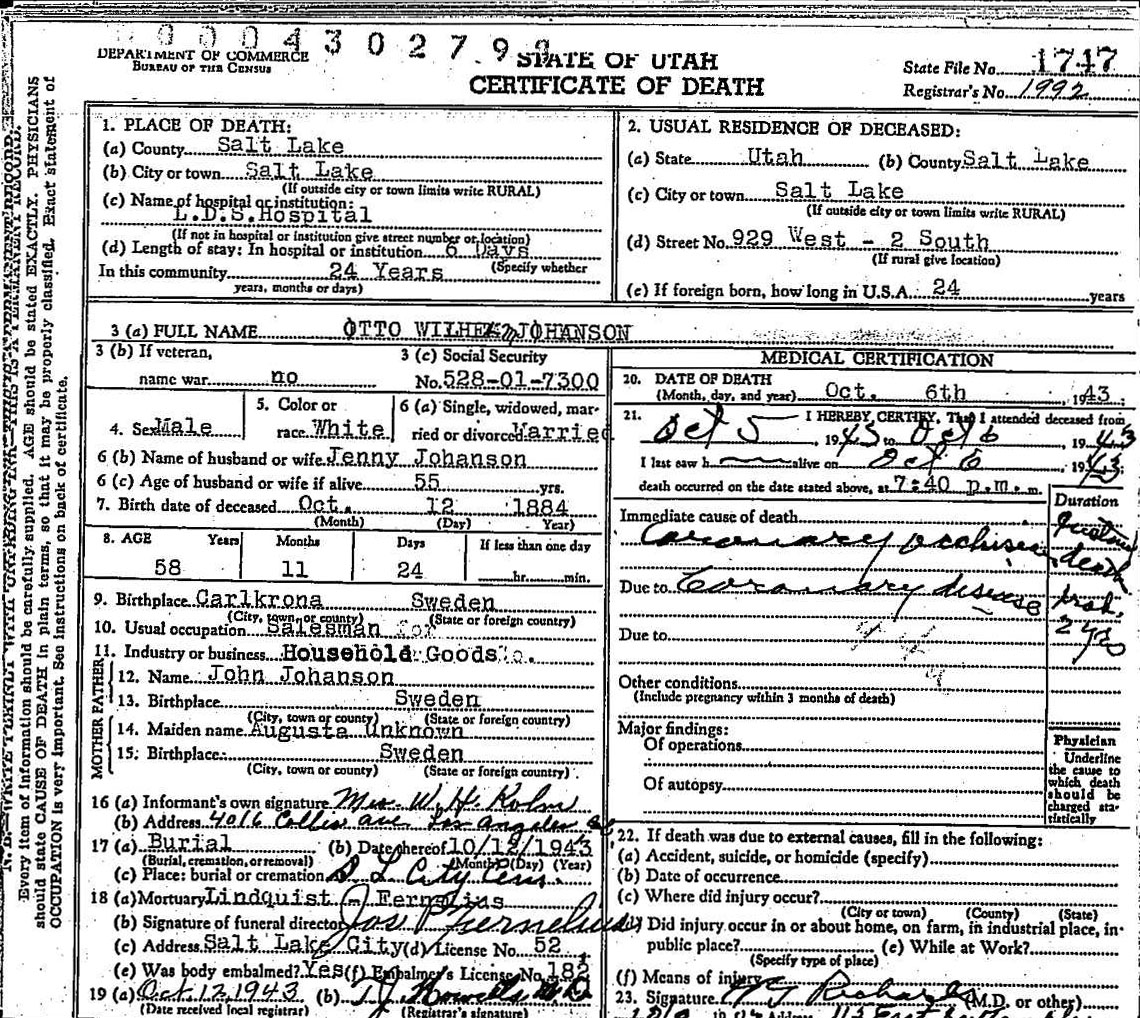 0004302799
DEPARTMENT OF COMMERCE
BUREAU OF THE CENSUS
STATE OF UTAH
CERTIFICATE OF DEATH
State File No. 1747
Registrar's No. 1992
Every item of information should be carefully supplied. AGE should be stated EXACTLY. PHYSICIANS
should state CAUSE OF DEATH in plain terms, so that it may be properly classified. Exact statement of
OCCUPATION is very important. See instructions on back of certificate.
1. PLACE OF DEATH:
(a) County Salt Lake
(b) City or town Salt Lake
(If outside city or town limits write RURAL)
(c) Name of hospital or institution:
L.D.S. Hospital
(If not in hospital or institution give street number or location)
(d) Length of stay: In hospital or institution 6 Days
(Specify whether
In this community 24 Years
years, months or days)
2. USUAL RESIDENCE OF DECEASED:
(a) State Utah (b) County Salt Lake
(c) City or town Salt Lake
(If outside city or town limits write RURAL)
(d) Street No. 929 West - 2 South
(If rural give location)
(e) If foreign born, how long in U.S.A. 24 years
3 (a) FULL NAME OTTO WILHELM JOHANSON
3 (b) If veteran,
name war no
3 (c) Social Security
No. 528-01-7300
4. Sex Male
5. Color or
race White
6 (a) Single, widowed, mar-
ried or divorced Married
6 (b) Name of husband or wife Jenny Johanson
6 (c) Age of husband or wife if alive 55 yrs.
7. Birth date of deceased Oct. 12 1884
(Month) (Day) Year)
8. AGE Years Months Days If less than one day
58 11 24 hr. min.
9. Birthplace Carlkrona Sweden
(City, town or county) (State or foreign country)
10. Usual occupation Salesman for
11. Industry or business Household Goods Co.
FATHER
12. Name John Johanson
13. Birthplace Sweden
(City, town or county) (State or foreign country)
MOTHER
14. Maiden name Augusta Unknown
15. Birthplace Sweden
(City, town or county) (State or foreign country)
16 (a) Informant's own signature Mrs. W. H. Kolm
(b) Address 4016 Collis ave Los Angeles Cal
17 (a) Burial (b) Date thereof 10/12/1943
(Burial, cremation, or removal) (Month) (Day) (Year)
(c) Place: burial or cremation S L City Cem.
18 (a) Mortuary Lindquist - Fernelius
(b) Signature of funeral director Jos P Fernelius
(c) Address Salt Lake City (d) License No. 52
(e) Was body embalmed? Yes (f) Embalmer's License No. 182
19 (a) Oct. 12, 1943 (b) T. J. Howells
(Date received local registrar) (Registrar's signature)
MEDICAL CERTIFICATION
20. DATE OF DEATH
(Month, day, and year) Oct. 6th, 1943.
21. I HEREBY CERTIFY, That I attended deceased from
Oct 5, 1943 to Oct 6 1943
I last saw h alive on Oct 6 1943
death occurred on the date stated above, at 7:40 p.m. m.
Duration
Immediate cause of death
Coronary occlusion
death
Due to Coronary disease prob. 2 yrs
Due to
Other conditions
(Include pregnancy within 3 months of death)
Major findings:
Of operations
Of autopsy
Physician
Underline
the cause to
which death
should be
charged sta-
tistically
22. If death was due to external causes, fill in the following:
(a) Accident, suicide, or homicide (specify)
(b) Date of occurrence
(c) Where did injury occur?
(City or town) (County) (State)
(d) Did injury occur in or about home, on farm, in industrial place, in-
public place? (e) While at Work?
(Specify type of place)
(f) Means of injury
23. Signature Richards (M.D. or other)